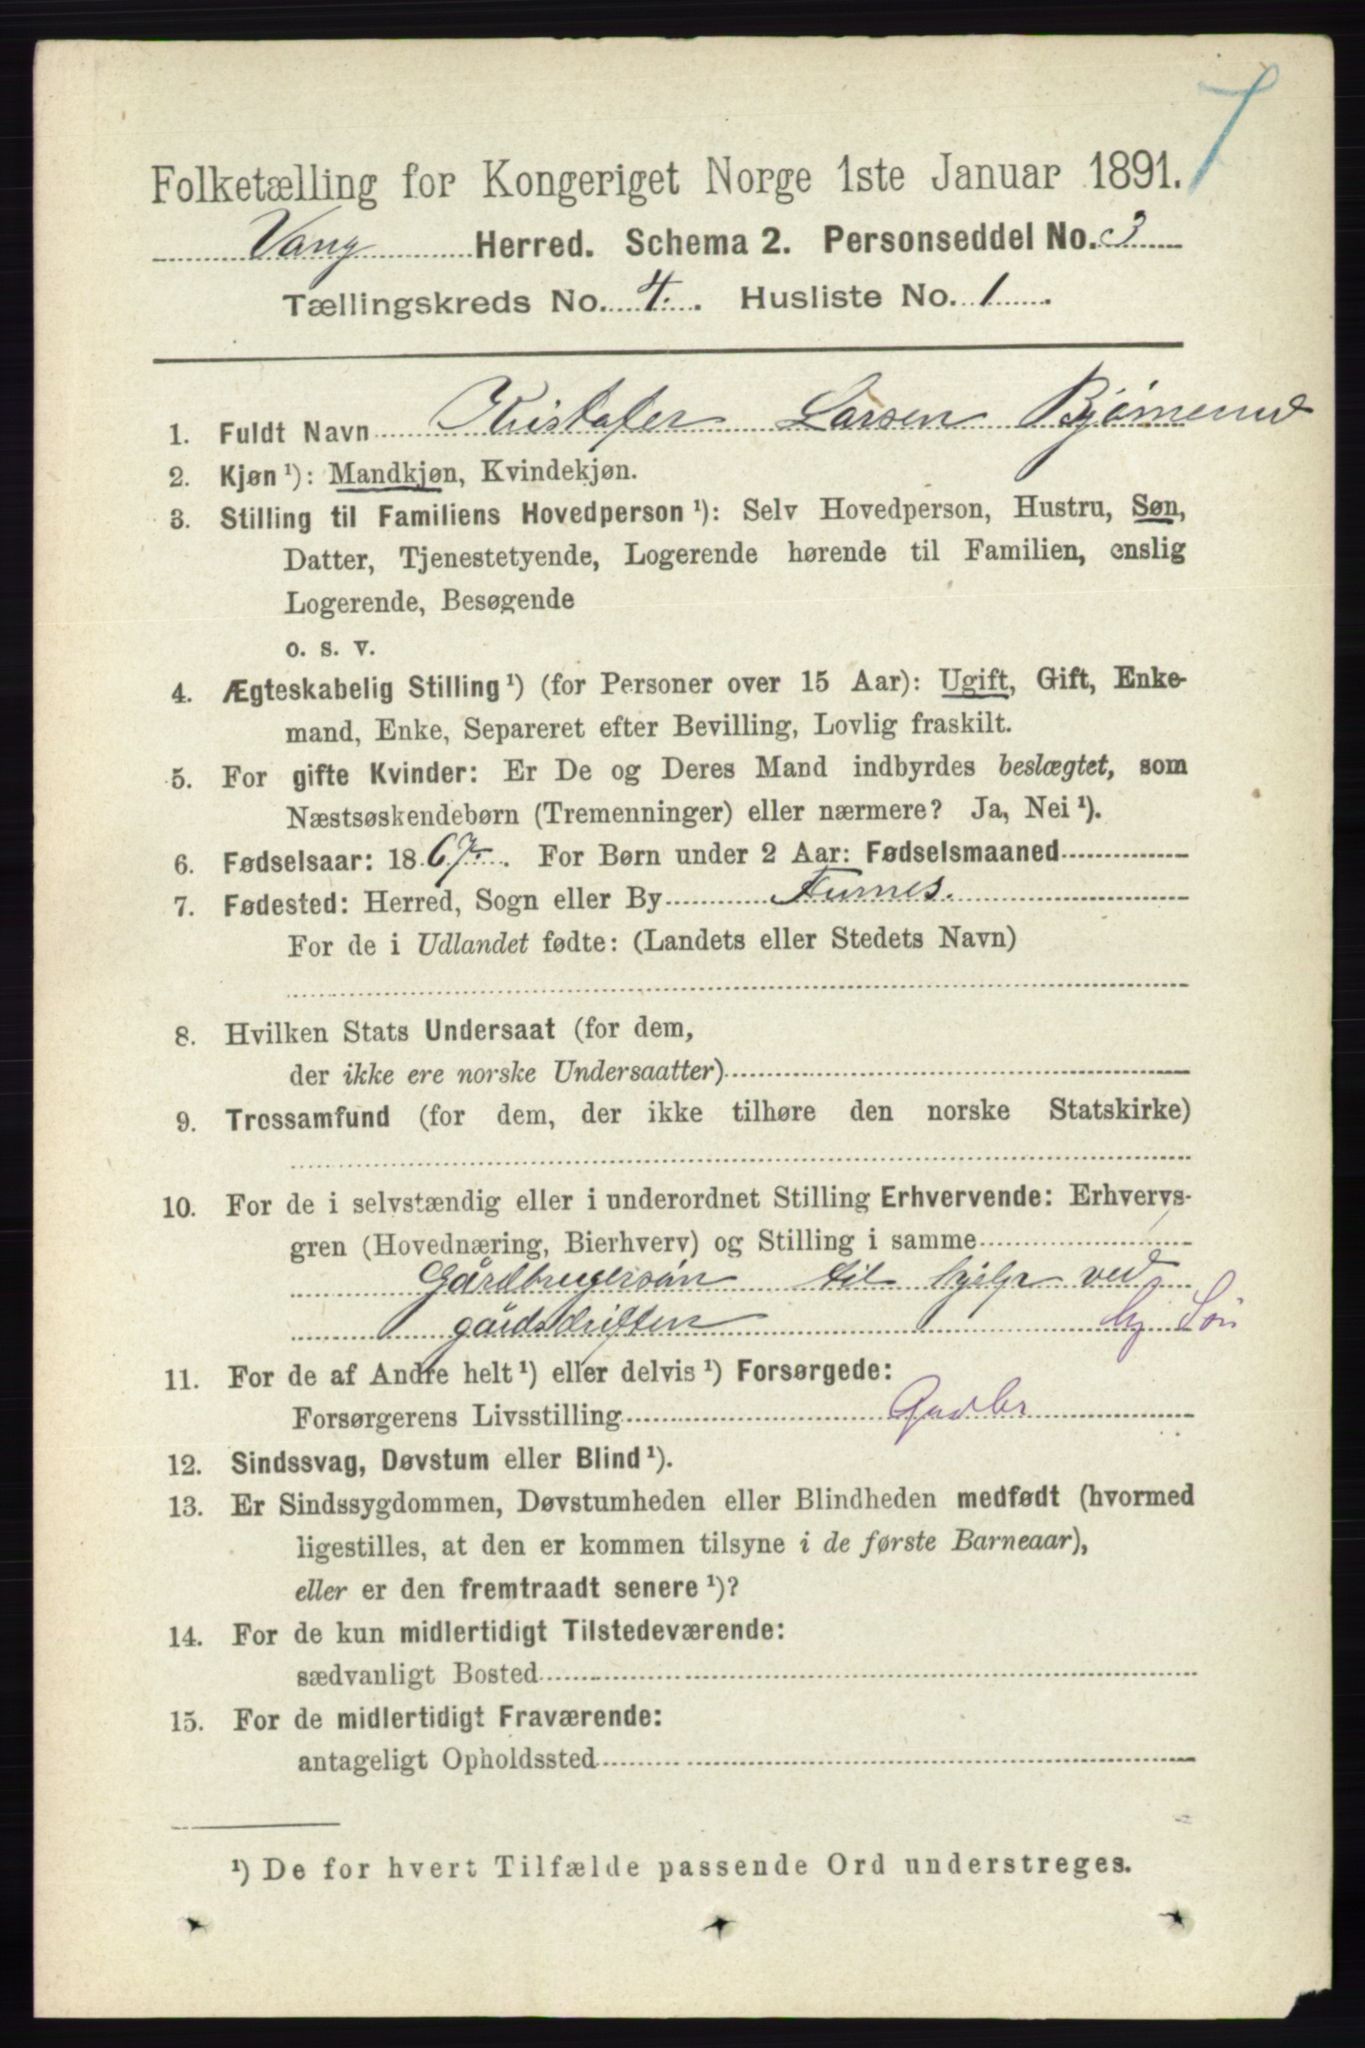 7
Folketælling for Kongeriget Norge 1ste Januar 1891.
Vang Herred. Schema 2. Personseddel No. 3
Tællingskreds No. 4. Husliste No. 1.
1. Fuldt Navn Kristofer Larsen
2. Kjøn ¹): Mandkjøn, Kvindekjøn.
3. Stilling til Familiens Hovedperson ¹): Selv Hovedperson, Hustru, Søn,
Datter, Tjenestetyende, Logerende hørende til Familien, enslig
Logerende, Besøgende
o. s. v.
4. Ægteskabelig Stilling ¹) (for Personer over 15 Aar): Ugift, Gift, Enke-
mand, Enke, Separeret efter Bevilling, Lovlig fraskilt.
5. For gifte Kvinder: Er De og Deres Mand indbyrdes beslægtet, som
Næstsøskendebørn (Tremenninger) eller nærmere? Ja, Nei ¹).
6. Fødselsaar: 1867. For Børn under 2 Aar: Fødselsmaaned
7. Fødested: Herred, Sogn eller By Furnes.
For de i Udlandet fødte: (Landets eller Stedets Navn)
8. Hvilken Stats Undersaat (for dem,
der ikke ere norske Undersaatter)
9. Trossamfund (for dem, der ikke tilhøre den norske Statskirke)
10. For de i selvstændig eller i underordnet Stilling Erhvervende: Erhvervs-
gren (Hovednæring, Bierhverv) og Stilling i samme
Gårdbrugersøn til hjelp ved
gårdsdriften hj Søn
11. For de af Andre helt ¹) eller delvis ¹) Forsørgede:
Forsørgerens Livsstilling Gaabr
12. Sindssvag, Døvstum eller Blind ¹).
13. Er Sindssygdommen, Døvstumheden eller Blindheden medfødt (hvormed
ligestilles, at den er kommen tilsyne i de første Barneaar),
eller er den fremtraadt senere ¹)?
14. For de kun midlertidigt Tilstedeværende:
sædvanligt Bosted
15. For de midlertidigt Fraværende:
antageligt Opholdssted
¹) De for hvert Tilfælde passende Ord understreges.